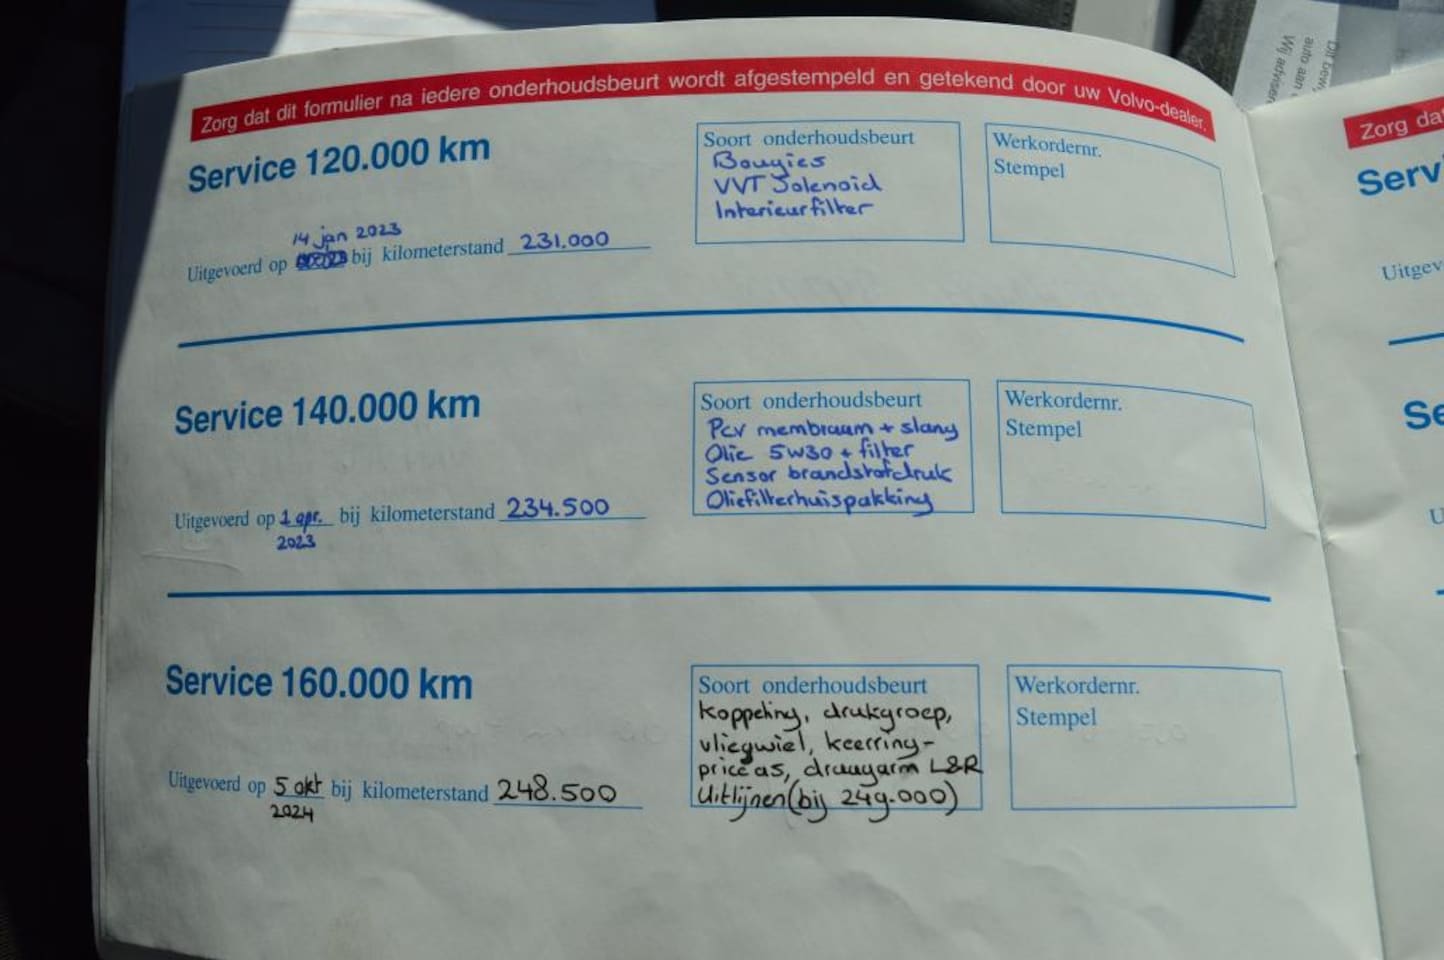 Zorg dat dit formulier na iedere onderhoudsbeurt wordt afgestempeld en getekend door uw Volvo-dealer.
Service 120.000 km
Soort onderhoudsbeurt
Bougies
VVT Solenoid
Interieurfilter
Werkordernr.
Stempel
14 jan 2023
Uitgevoerd op bij kilometerstand 231.000
Service 140.000 km
Soort onderhoudsbeurt
Pcv membraam + slang
Olie 5w30 + filter
Sensor brandstofdruk
Oliefilterhuispakking
Werkordernr.
Stempel
Uitgevoerd op 1 apr. bij kilometerstand 234.500
2023
Service 160.000 km
Soort onderhoudsbeurt
Koppeling, drukgroep,
vliegwiel, keerring-
price as, draagarm L&R
Uitlijnen (bij 249.000)
Werkordernr.
Stempel
Uitgevoerd op 5 okt bij kilometerstand 248.500
2024
Zorg dat
Serv
Uitgev
Se
U
Dit bewij
auto aan
Wij advisen